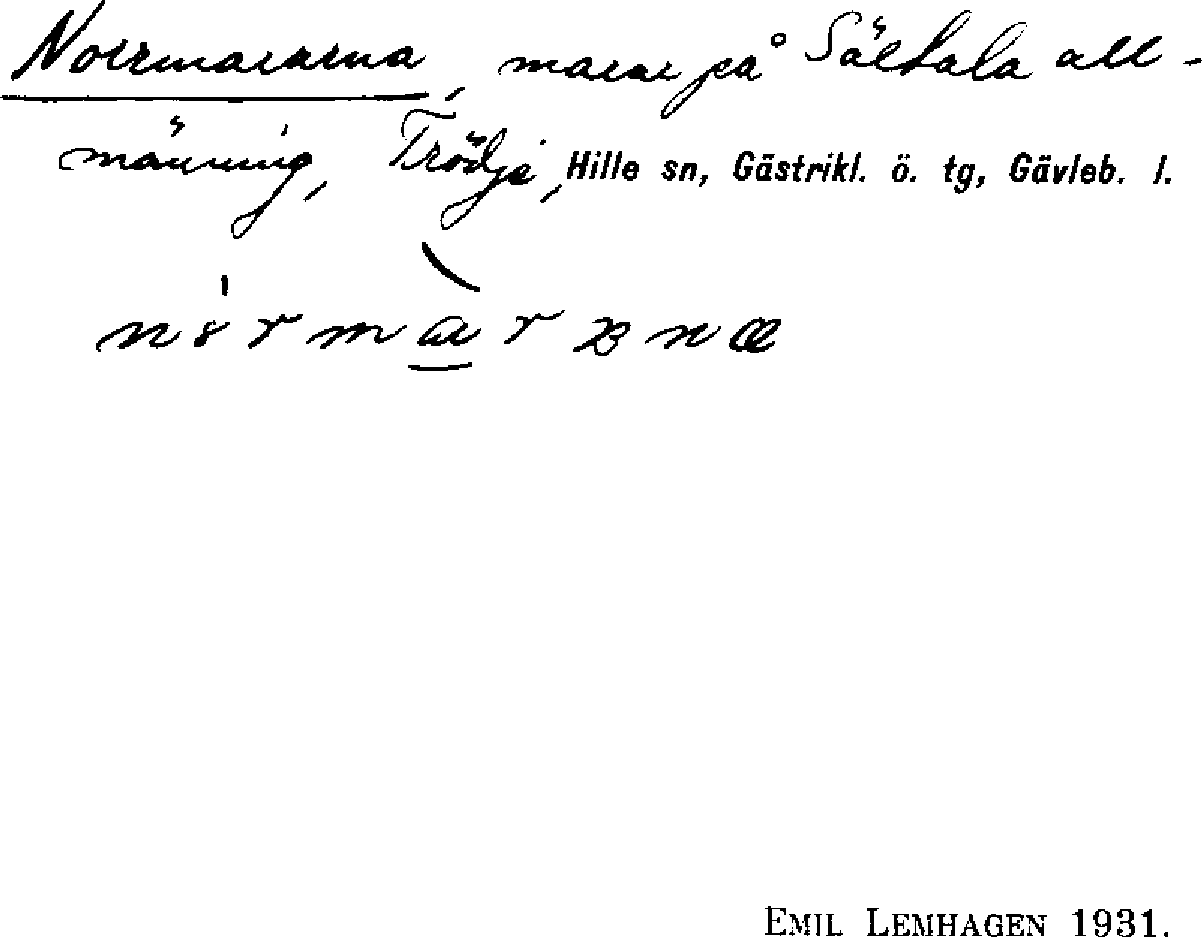 Norrmararna, marar på all-
männing, Trödje, Hille sn, Gästrikl. ö. tg, Gävleb. l.
EMIL LEMHAGEN 1931.